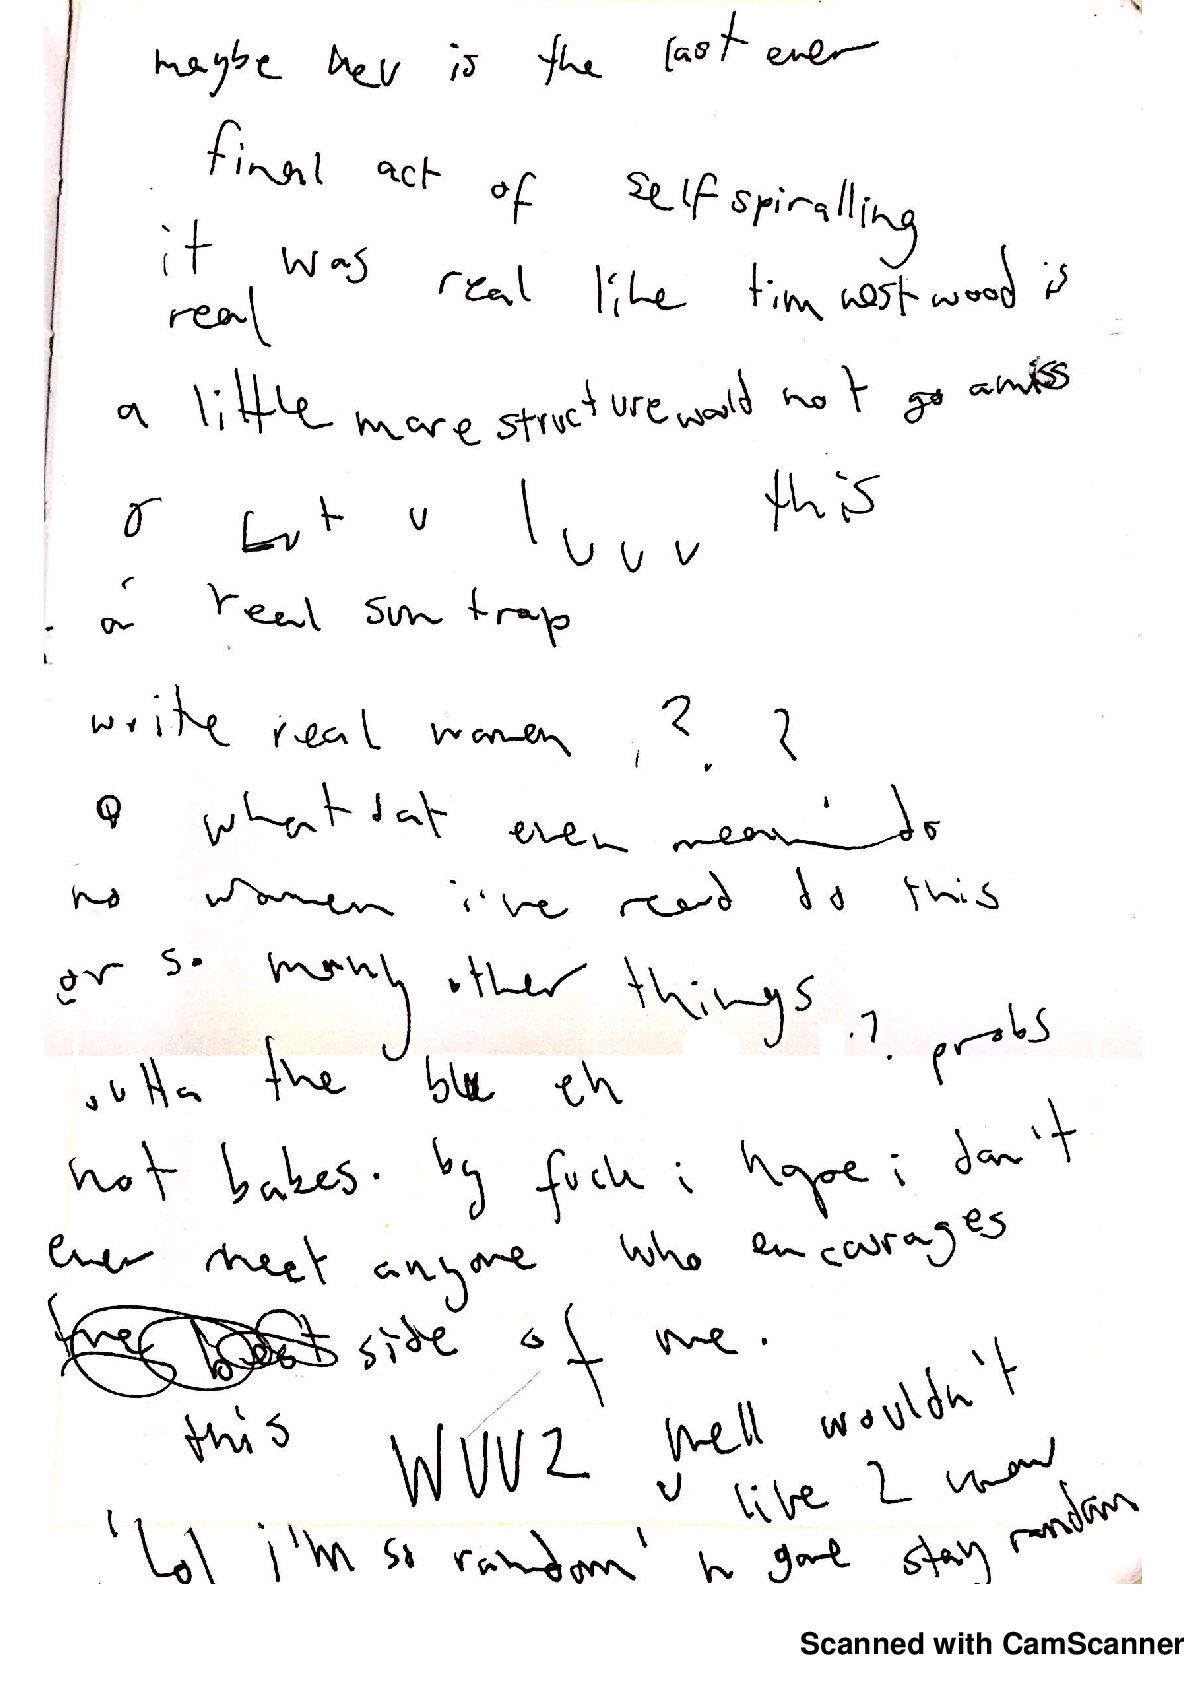 maybe hev is the last ever
final act of self spiralling
it was real like tim westwood is
real
a little more structure would not go amiss
or but u luvvv this
a real sun trap
write real women ? ?
what dat even mean do
no women i've read do this
or so many other things
.?. probs
outta the blue eh
not bakes. by fuck i hope i don't
ever meet anyone who encourages
the best side of me.
this WUV2 well wouldn't
u like 2 know
'lol i'm so random' n gone stay random
Scanned with CamScanner